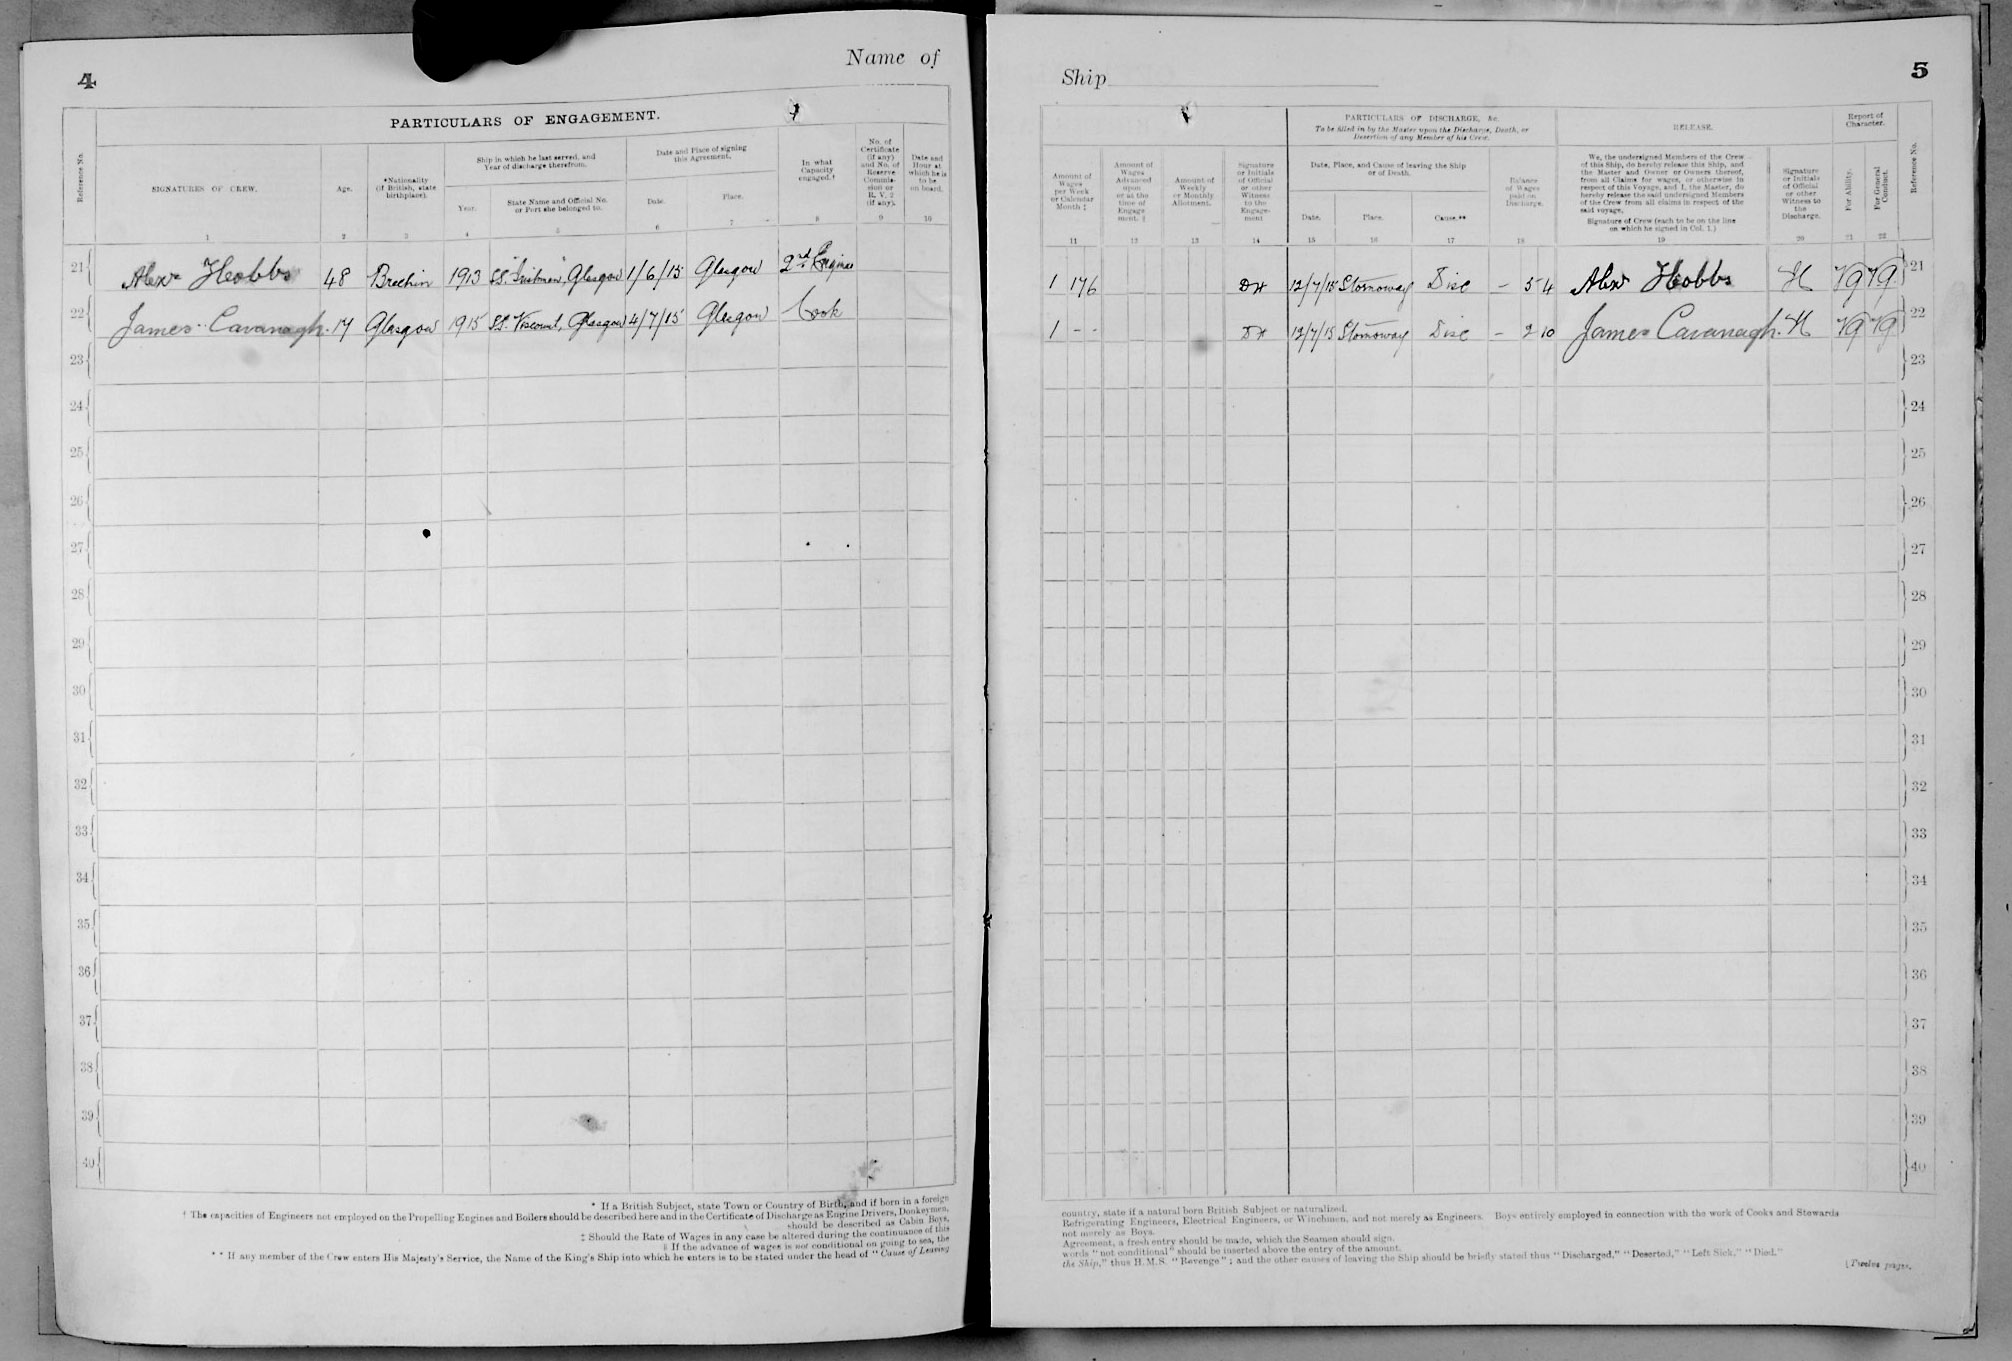 4
Name of
PARTICULARS OF ENGAGEMENT.
Reference No.
SIGNATURES OF CREW.
Age.
*Nationality
(if British, state
birthplace).
Ship in which he last served, and
Year of discharge therefrom.
Year.
State Name and Official No.
or Port she belonged to.
Date and Place of signing
this Agreement.
Date.
Place.
In what
Capacity
engaged.†
No. of
Certificate
(if any)
and No. of
Reserve
Commis-
sion or
R. V. 2
(if any).
Date and
Hour at
which he is
to be
on board.
1 2 3 4 5 6 7 8 9 10
21 Alexr Hobbs 48 Brechin 1913 SS. Glasgow 1/6/15 Glasgow 2nd Engineer
22 James Cavanagh. 17 Glasgow 1915 SS. Viscount, Glasgow 4/7/15 Glasgow Cook
23
24
25
26
27
28
29
30
31
32
33
34
35
36
37
38
39
40
* If a British Subject, state Town or Country of Birth, and if born in a foreign
† The capacities of Engineers not employed on the Propelling Engines and Boilers should be described here and in the Certificate of Discharge as Engine Drivers, Donkeymen,
should be described as Cabin Boys,
‡ Should the Rate of Wages in any case be altered during the continuance of this
|| If the advance of wages is not conditional on going to sea, the
** If any member of the Crew enters His Majesty's Service, the Name of the King's Ship into which he enters is to be stated under the head of "Cause of Leaving
Ship
5
Amount of
Wages
per Week
or Calendar
Month ‡
Amount of
Wages
Advanced
upon
or at the
time of
Engage
ment. ||
Amount of
Weekly
or Monthly
Allotment.
Signature
or Initials
of Official
or other
Witness
to the
Engage-
ment
PARTICULARS OF DISCHARGE, &c.
To be filled in by the Master upon the Discharge, Death, or
Desertion of any Member of his Crew.
Date, Place, and Cause of leaving the Ship
or of Death.
Date.
Place.
Cause.**
Balance
of Wages
paid on
Discharge.
RELEASE.
We, the undersigned Members of the Crew
of this Ship, do hereby release this Ship, and
the Master and Owner or Owners thereof,
from all Claims for wages, or otherwise in
respect of this Voyage, and I, the Master, do
hereby release the said undersigned Members
of the Crew from all claims in respect of the
said voyage.
Signature of Crew (each to be on the line
on which he signed in Col. 1.)
Signature
or Initials
of Official
or other
Witness to
the
Discharge.
Report of
Character.
For Ability.
For General
Conduct.
Reference No.
11 12 13 14 15 16 17 18 19 20 21 22
1 17 6 DH 12/7/15 Stornoway Disc – 5 4 Alexr Hobbs H VG VG 21
1 - - DH 12/7/15 Stornoway Disc – 2 10 James Cavanagh. H VG VG 22
23
24
25
26
27
28
29
30
31
32
33
34
35
36
37
38
39
40
country, state if a natural born British Subject or naturalized.
Refrigerating Engineers, Electrical Engineers, or Winchmen, and not merely as Engineers. Boys entirely employed in connection with the work of Cooks and Stewards
not merely as Boys.
Agreement, a fresh entry should be made, which the Seamen should sign.
words "not conditional" should be inserted above the entry of the amount.
the Ship," thus H.M.S. "Revenge"; and the other causes of leaving the Ship should be briefly stated thus "Discharged," "Deserted," "Left Sick," "Died."
[Twelve pages.